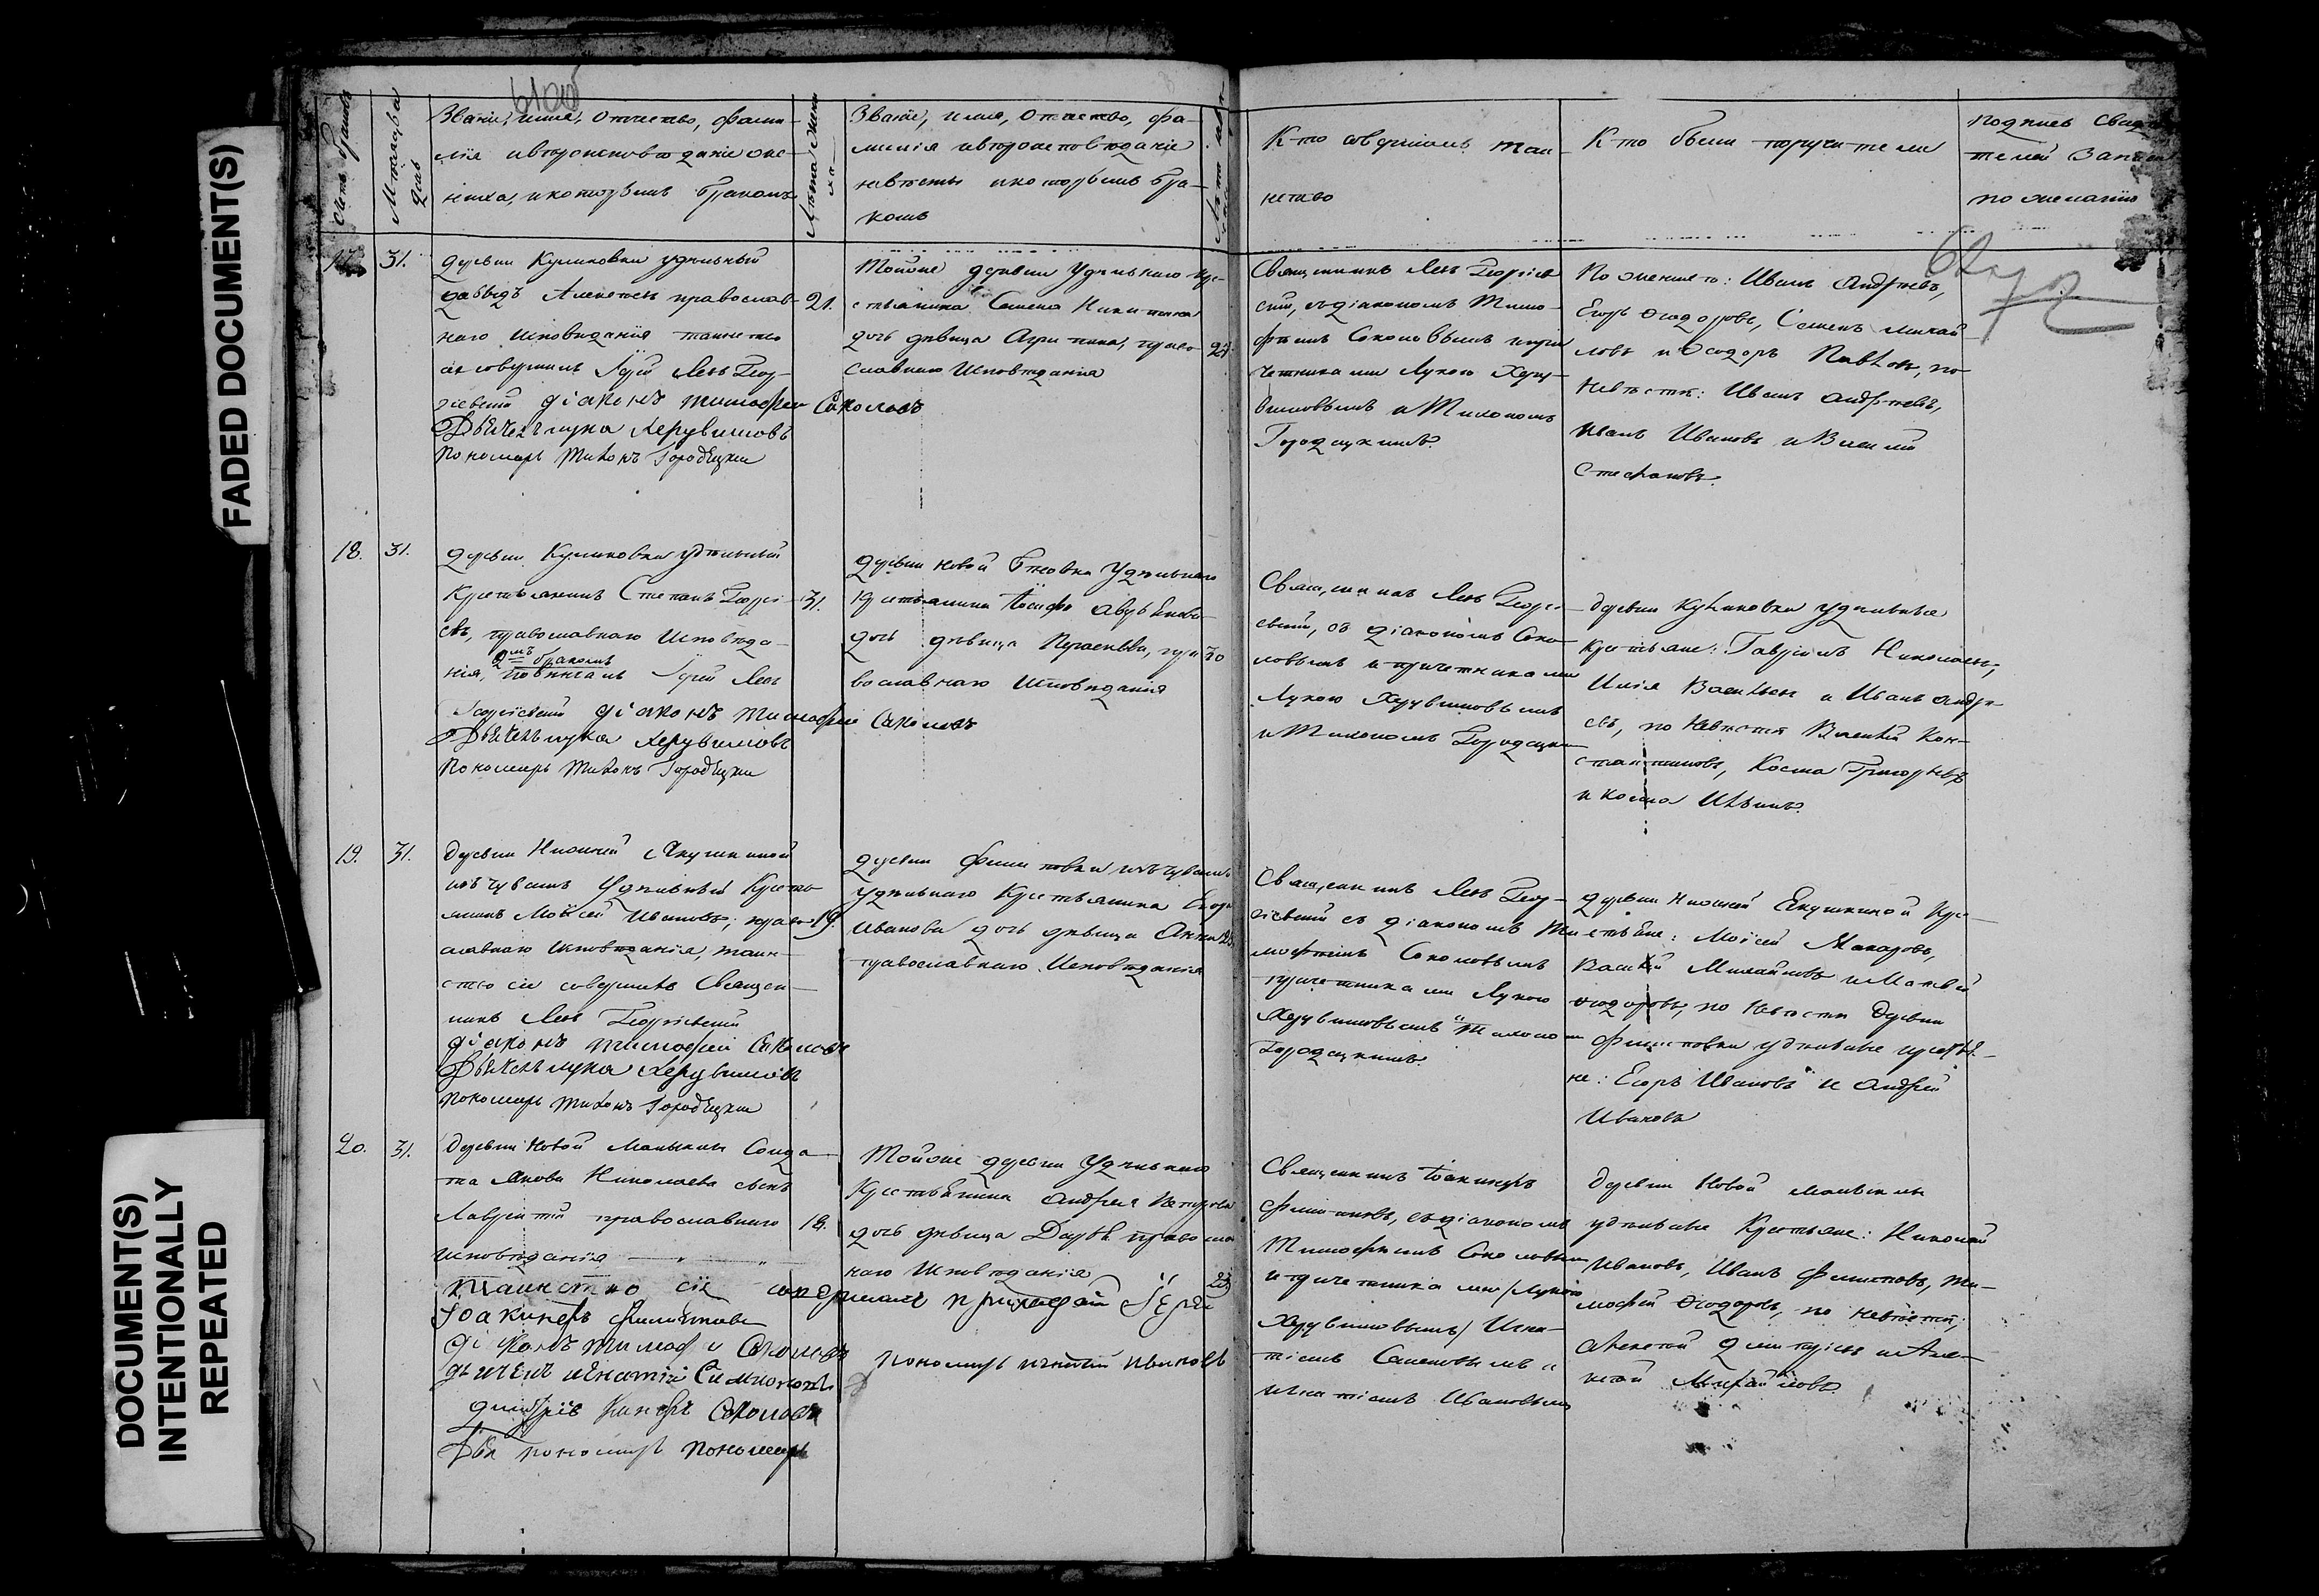 FADED DOCUMENT(S)
DOCUMENT(S)
INTENTIONALLY
REPEATED
61об
Счетъ браковъ
Мѣсяцъ и
день
Званіе, имя, отчество, фами-
лія и вѣроисповѣданіе же-
ниха, и которымъ бракомъ
Лѣта жени
ха
Званіе, имя, отчество, фа-
милія и вѣроисповѣданіе
невѣсты и которымъ бра-
комъ
Кто совершилъ таи-
нство
Кто были поручители
подпись свидѣ
телей записи
по желанію
17.
31.
Деревни Куликовки удѣльный
Давыдъ Алексѣевъ православ-
наго исповѣданія таинство
сіе совершилъ Іерей Левъ Геор-
гіевскій діаконъ Тимофеи Саколовъ
Дьячекъ лука Херувимовъ
Пономарь Тихонъ Городецкии
21.
Тойже деревни Удѣльнаго кре-
стьянина Семена Никитина
дочь дѣвица Агрипина, право
славнаго Исповѣданія
Священникъ Левъ Георгіев
скій, съ діакономъ Тимо-
феемъ Соколовымъ и при
четниками Лукою Херу-
вимовымъ и Тихономъ
Городецкимъ.
По женихѣ: Иванъ Андреевъ,
Егоръ Ѳеодоровъ, Семенъ Михай
ловъ и Ѳеодоръ Павловъ, по
Невѣстѣ: Иванъ Андреевъ,
Иванъ Ивановъ и Василій
Стефановъ.
18.
31.
Деревни Куликовки удѣльный
Крестьянинъ Степанъ Георгі-
евъ, православнаго Исповѣда-
2мъ бракомъ
нія, повѣнчалъ Іерей Левъ
Георгіевскій діаконъ Тимофеи Саколовъ
Дьячекъ лука Херувимовъ
Пономарь Тихонъ Городецкии
31.
Деревни Новой Удѣльнаго
Крестьянина Іосифа
дочь дѣвица пра
вославнаго Исповѣданія
30
Священникъ Левъ Георгі-
евскій, съ діакономъ Соко-
ловымъ и причетниками
Лукою Херувимовымъ
и Тихономъ Городецким
Деревни Куликовки удѣльные
Крестьяне: Гавріилъ Николаевъ,
Илія Васильевъ и Иванъ Андре
евъ, по Невѣстѣ Василій Кон-
стантиновъ, Косма Григорьевъ
и Косма Ильинъ.
19.
31.
Деревни Нижней Якушкиной
изъ чувашъ Удѣльный Кресть
янинъ Моѵсей Ивановъ, право
славнаго исповѣданія, таин-
ство сіе совершилъ Священ-
никъ Левъ Георгіевскій
діаконъ Тимофеи Саколовъ
Дьячекъ лука Херувимовъ
Пономарь Тихонъ Городецкии
19.
Деревни изъ чувашъ
удѣльнаго Крестьянина Егора
Иванова дочь дѣвица Анна
православнаго Исповѣданія
Священникъ Левъ Геор-
гіевскій съ діакономъ Ти
мофеемъ Соколовымъ
причетниками Лукою
Херувимовымъ и Тихоном
Городецкимъ.
Деревни Нижней Якушкиной Кре-
стьяне: Моісей Макаровъ,
Василій Михайловъ и Матвей
Ѳеодоровъ, по Невѣстѣ Деревни
удѣльные крестья-
не: Егоръ Ивановъ и Андрей
Ивановъ
20.
31.
Деревни Новой Малыклы Солда
та Якова Николаева сынъ
Лаврентій православнаго
исповѣданія
таинство сіе совершилъ Іерей
Іоакинфъ Филиповъ
діаконъ Тимофеи Саколовъ
дьячекъ Игнатіи
Пономарь Игнатий Ивановъ
пономарь Пономарь
18.
Тойже деревни Удѣльнаго
Крестьянина Андрея Петрова
дочь дѣвица Дарья правосла
внаго Исповѣданія
23
Священникъ Іоакинфъ
Филиповъ, съ діакономъ
Тимофеемъ Соколовым
и причетниками Лукою
Херувимовымъ Игна-
тіемъ Семеновымъ и
Игнатіемъ Ивановым
Деревни Новой Малыклы
удѣльные Крестьяне: Николай
Ивановъ, Иванъ Филиповъ, Ти-
мофей Ѳеодоровъ, по невѣстѣ:
Алексей Димитріевъ и Але-
ксей Михайловъ